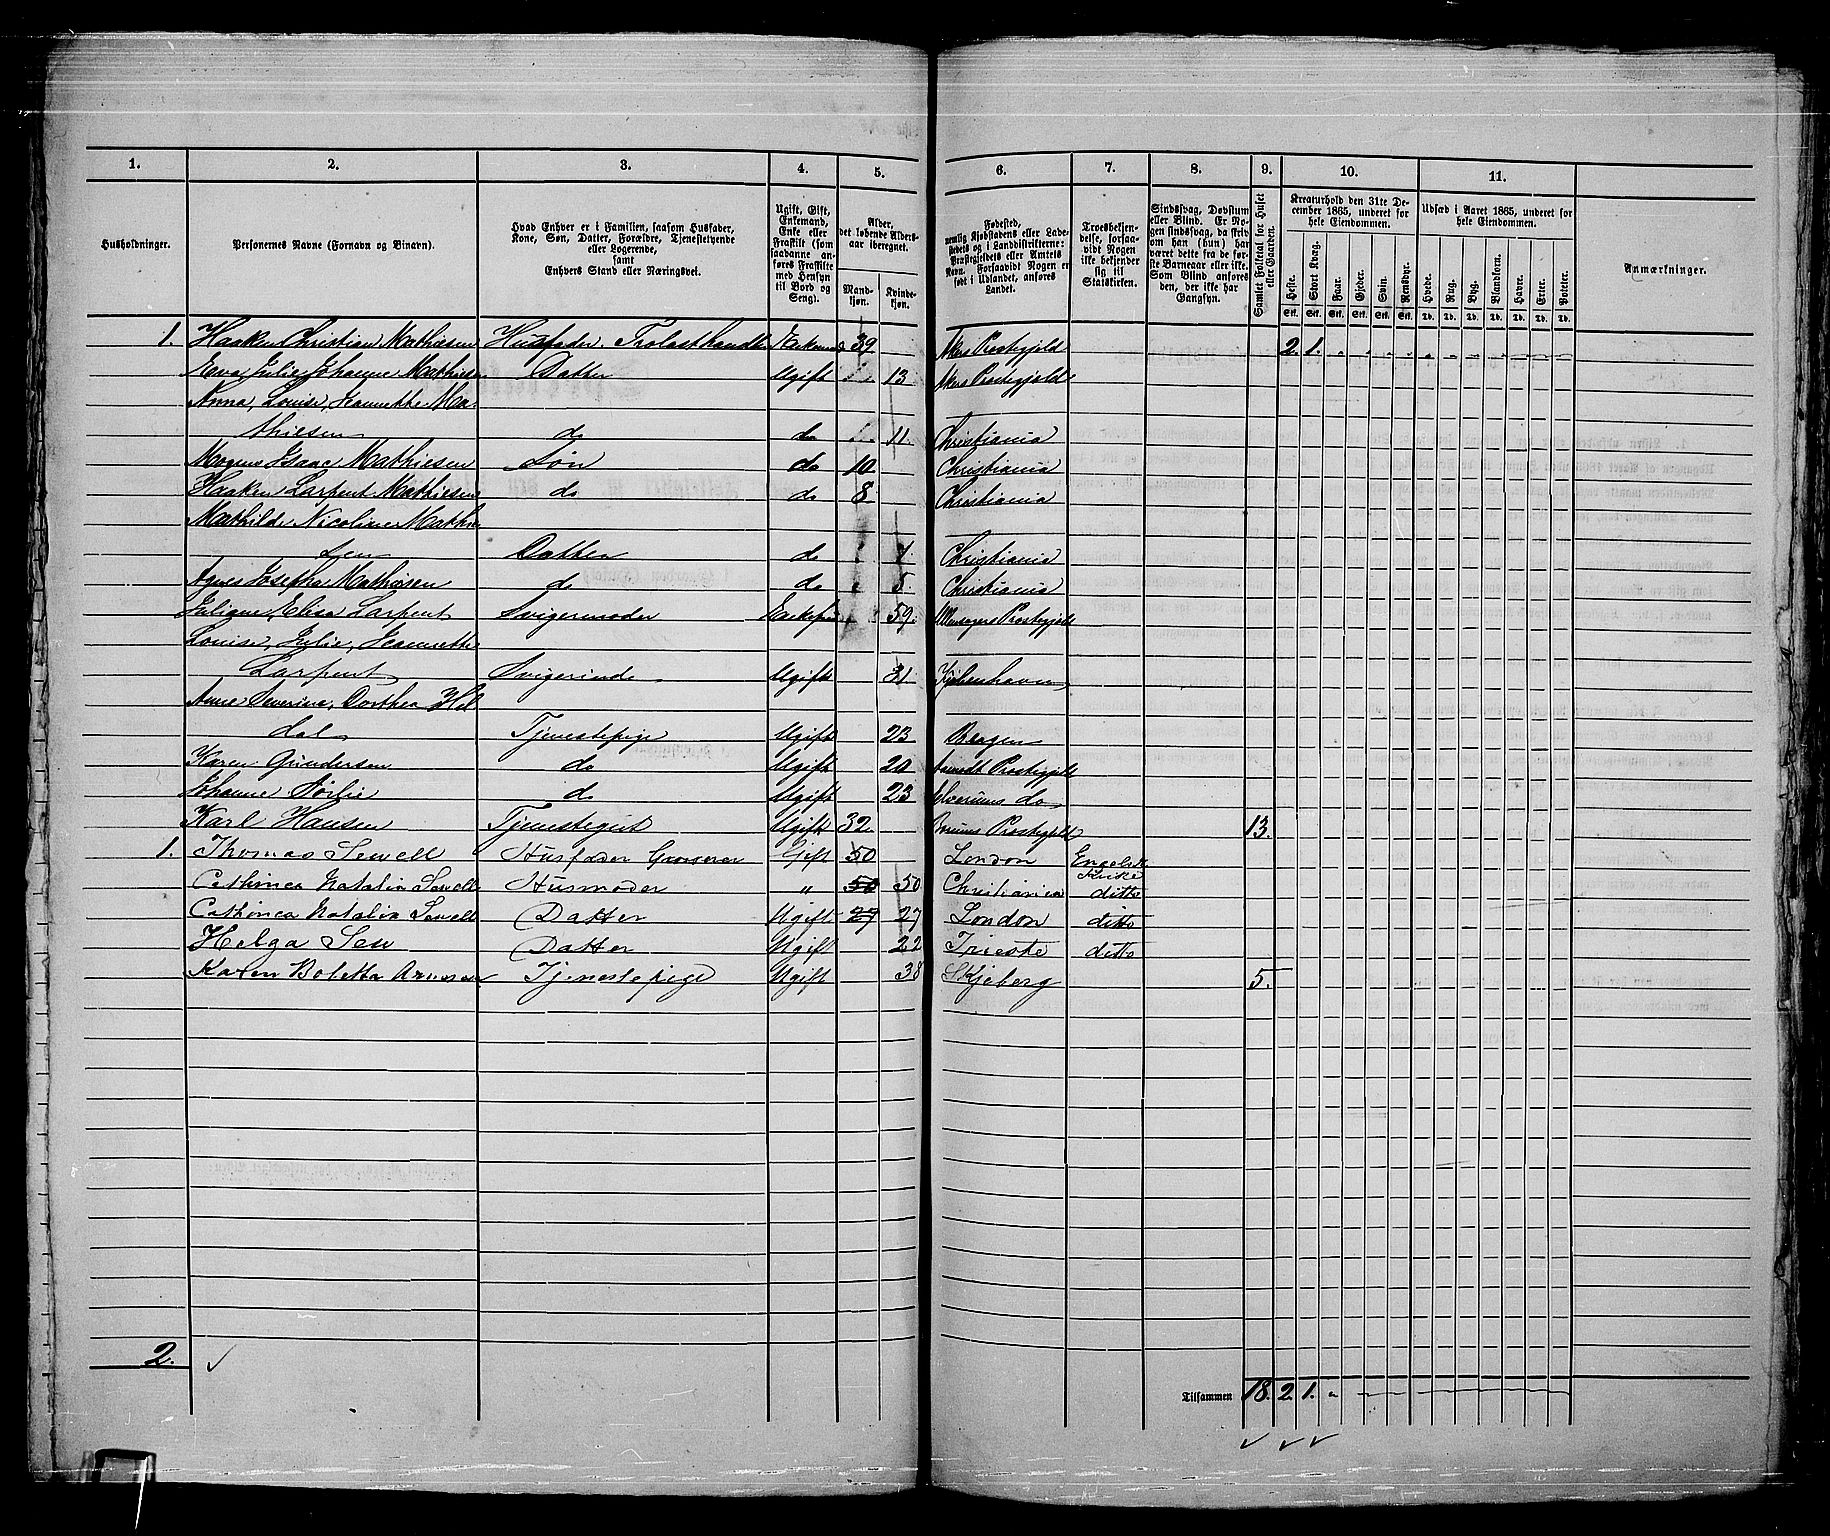 1. 2. 3. 4. 5. 6. 7. 8. 9. 10. 11.
Husholdninger.
Personernes Navne (Fornavn og Binavn).
Hvad Enhver er i Familien, saasom Husfader,
Kone, Søn, Datter, Forældre, Tjenestetyende
eller Logerende,
samt
Enhvers Stand eller Næringsvei.
Ugift, Gift,
Enkemand,
Enke eller
Fraskilt (som
saadanne an-
føres Fraskilte
med Hensyn
til Bord og
Seng).
Alder,
det løbende Alders-
aar iberegnet.
Mand-
kjøn.
Kvinde-
kjøn.
Fødested,
nemlig Kjøbstadens eller Lade-
stedets og i Landdistrikterne:
Præstegjeldets eller Amtets
Navn. Forsaavidt Nogen er
født i Udlandet, anføres
Landet.
Troesbekjen-
delse, forsaa-
vidt Nogen
ikke bekjender
sig til
Statskirken.
Sindssvag, Døvstum
eller Blind. Er No-
gen sindssvag, da skrives
om han (hun) har
været dette fra de før-
ste Barneaar eller ikke.
Som Blind anføres
den, der ikke har
Gangsyn.
Samlet Folketal for Huset
eller Gaarden.
Kreaturhold den 31te De-
cember 1865, underet for
hele Eiendommen.
Heste. Stort Kvæg. Faar. Gjeder. Svin. Rensdyr.
Stk. Stk. Stk. Stk. Stk. Stk.
Udsæd i Aaret 1865, underet for
hele Eiendommen.
Hvede. Rug. Byg. Blandkorn. Havre. Erter. Poteter.
Td. Td. Td. Td. Td. Td. Td.
Anmærkninger.
1. Haaken Christian Mathiesen Husfader. Trælasthandle Enkemand 39 Akers Prestegjeld 2 1.
Eva Julie Johanne Mathiesen Datter Ugift 13 Akers Prestegjeld
Anna, Louise, Jeannette Ma-
thiesen do do 11. Christiania
Mogens Isaac Mathiesen Søn do 10 Christiania
Haaken Larpent Mathiesen do do 8 Christiania
Mathilde Nicoline Mathie
sen Datter do 7. Christiania
Agnes Josepha Mathisen do do 5. Christiania
Juliane, Elisa Larpent Svigermoder Enkefru 59. Prestegjeld
Louise, Julie, Jeannette
Larpent Svigerinde Ugift 31 Kjøbenhavn
Anne Severine, Dorthea Hel
dal Tjenestepige Ugift 23 Bergen
Karen Gundersen do Ugift 20 Prestegjeld
Johanne Sørlie do Ugift 23 Elverums do
Karl Hansen Tjenestegut Ugift 32 Prestegjeld 13.
1. Thomas Sewell Husfader Grosserer Gift 50 London Engelsk
Kirke
Cathinca Natalia Sewell Husmoder " 50 50 Christiania ditto
Cathinca Natalia Sewell Datter Ugift 27 27 London ditto
Helga Sew Datter Ugift 22 Trieste ditto
Karen Boletta Arnesen Tjenestepige Ugift 38 Skjeberg 5.
2. ✓
Tilsammen 18. 2 1.
✓ ✓ ✓